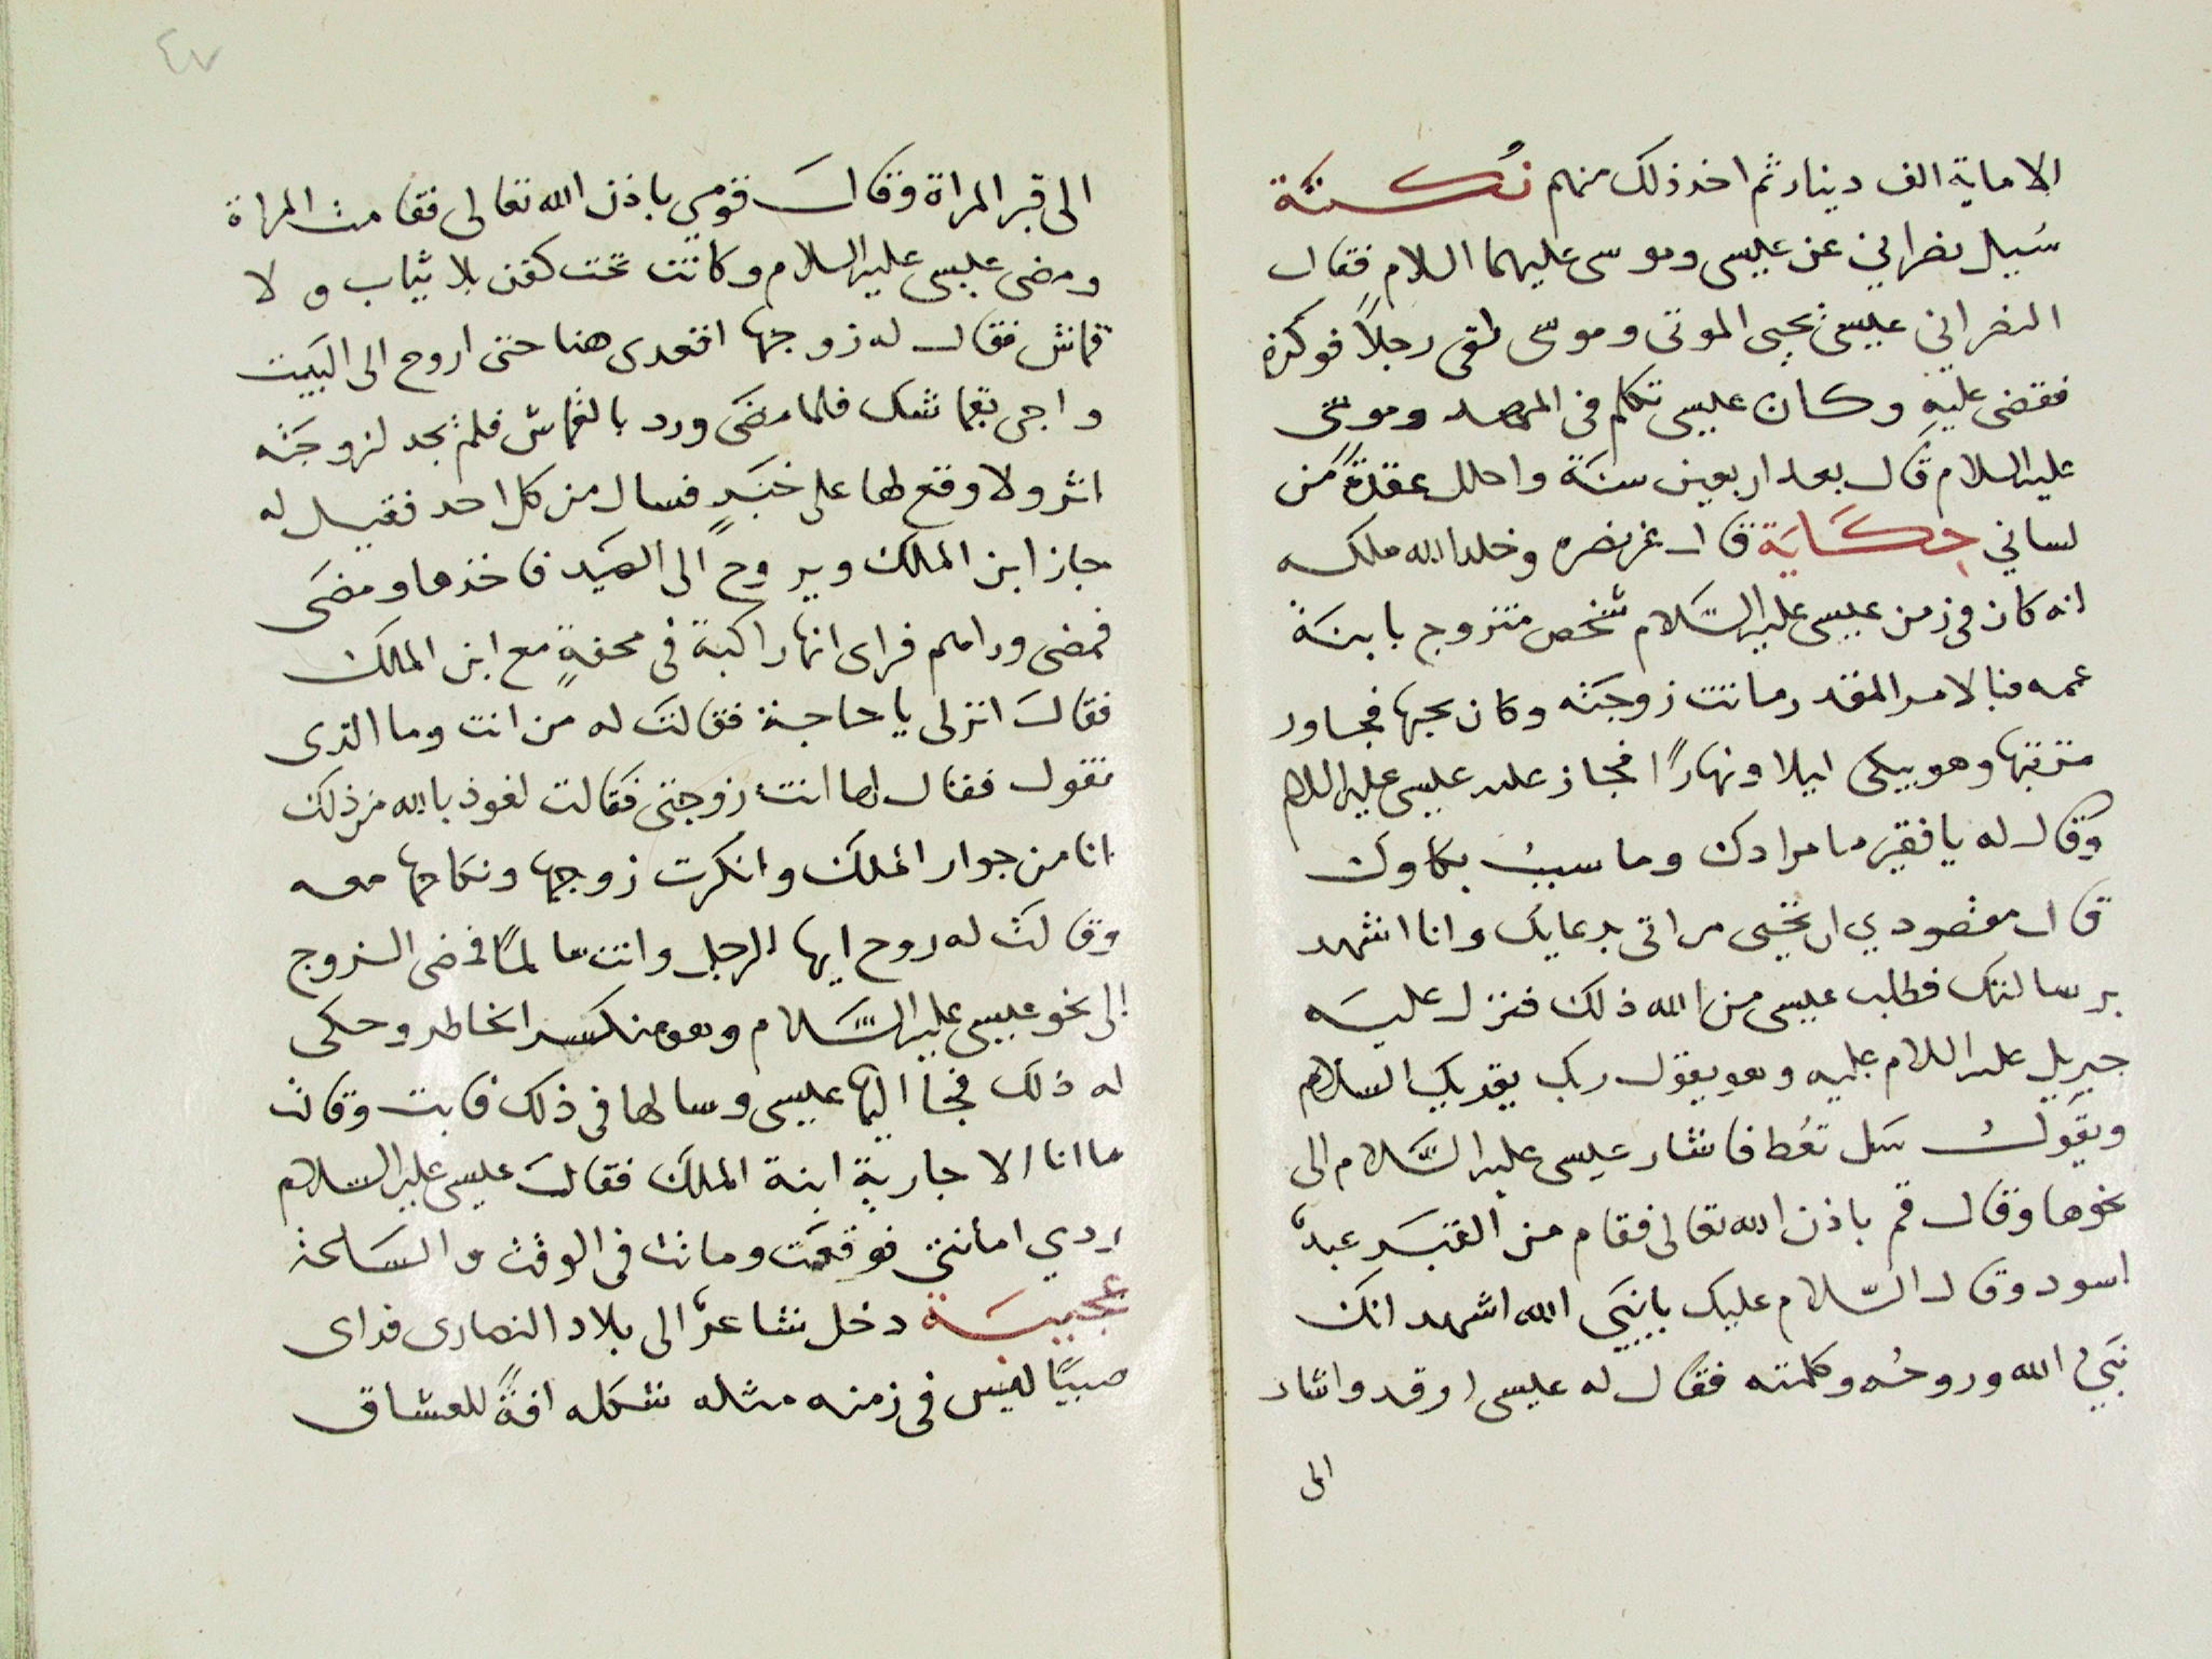 الا ماية الف دينار ثم اخذ ذلك منهم نُكتة
سُيل نصراني عن عيسى وموسى عليهما السلام فقال
النصراني عيسى يحيى الموتى وموسى لقى رجلاً فوكزه
فقضى عليه وكان عيسى تكلم فى المهد وموسى
عليه السلام قال بعد اربعين سنة واحلل عقدةً من
لساني حكاية قال عز نصره وخلد الله ملكه
انه كان فى زمن عيسى عليه السَّلام شخص متزوج بابنة
عمه فبالامر المقدر ماتت زوجته وكان يحبها فجاور
تربتها وهو يبكى ليلا ونهارًا فجاز عليه عيسى عليه السلام
وقال له يا فقير ما مرادك وما سبب بكاوك
قال مقصودي ان تحيى مراتى بدعايك وانا اشهد
برسالتك فطلب عيسى من الله ذلك فنزل عليه
جبريل عليه السلام عليه وهو يقول ربك يقريك السلام
ويقول سَل تعُط فاشار عيسى عليه السَّلام الى
نحوها وقال قم باذن الله تعالى فقام من القبر عبدٌ
اسود وقال السّلام عليك يا نبيّ الله اشهد انك
نبيُ الله وروحُه وكلمته فقال له عيسى ارقد واشار
الى
٤٧
الى قبر المراة وقال قومي باذن الله تعالى فقامت المراة
ومضى عيسى عليه السلام وكانت تحت كفن بلا ثياب ولا
قماش فقال له زوجها اقعدى هنا حتى اروح الى البيت
واجى بقماشك فلما مضى ورد بالقماش فلم يجد لزوجته
اثر ولا وقع لها على خبَرٍ فسال من كل احد فقيل له
جاز ابن الملك ويروح الى الصيد فاخذها ومضى
فمضى وراهم فراى انها راكبة فى محفةٍ مع ابن الملك
فقال انزلى يا حاجة فقالت له من انت وما الذى
تقول فقال لها انت زوجتى فقالت نعوذ بالله من ذلك
انا من جوار الملك وانكرت زوجها ونكاحها معه
وقالت له روح ايها الرجل وانت سالمًا فمضى الزوج
الى نحو عيسى عليه السَّلام وهو منكسر الخاطر وحكى
له ذلك فجا اليها عيسى وسالها فى ذلك فابت وقالت
ما انا الا جارية ابنة الملك فقال عيسى عليه السلام
ردي امانتى فوقعت وماتت فى الوقت والساعة
عجيبة دخل شاعرٌ الى بلاد النصارى فراى
صبيًا ليس فى زمنه مثله شكله افةً للعشاق